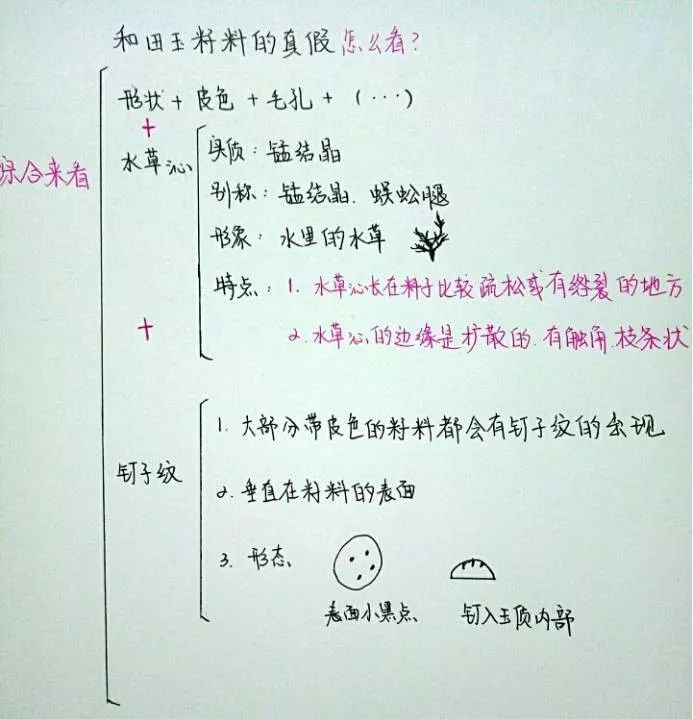 和田玉籽料的真假怎么看?
形状 + 皮色 + 毛孔 + (···)
+
综合来看
水草沁
实质: 锰结晶
别称: 锰结晶. 蜈蚣腿
形象: 水里的水草
特点: 1. 水草沁长在料子比较疏松或有绺裂的地方
+
2. 水草沁的边缘是扩散的. 有触角. 枝条状
钉子纹
1. 大部分带皮色的籽料都会有钉子纹的出现
2. 垂直在籽料的表面
3. 形态
表面小黑点 钉入玉质内部